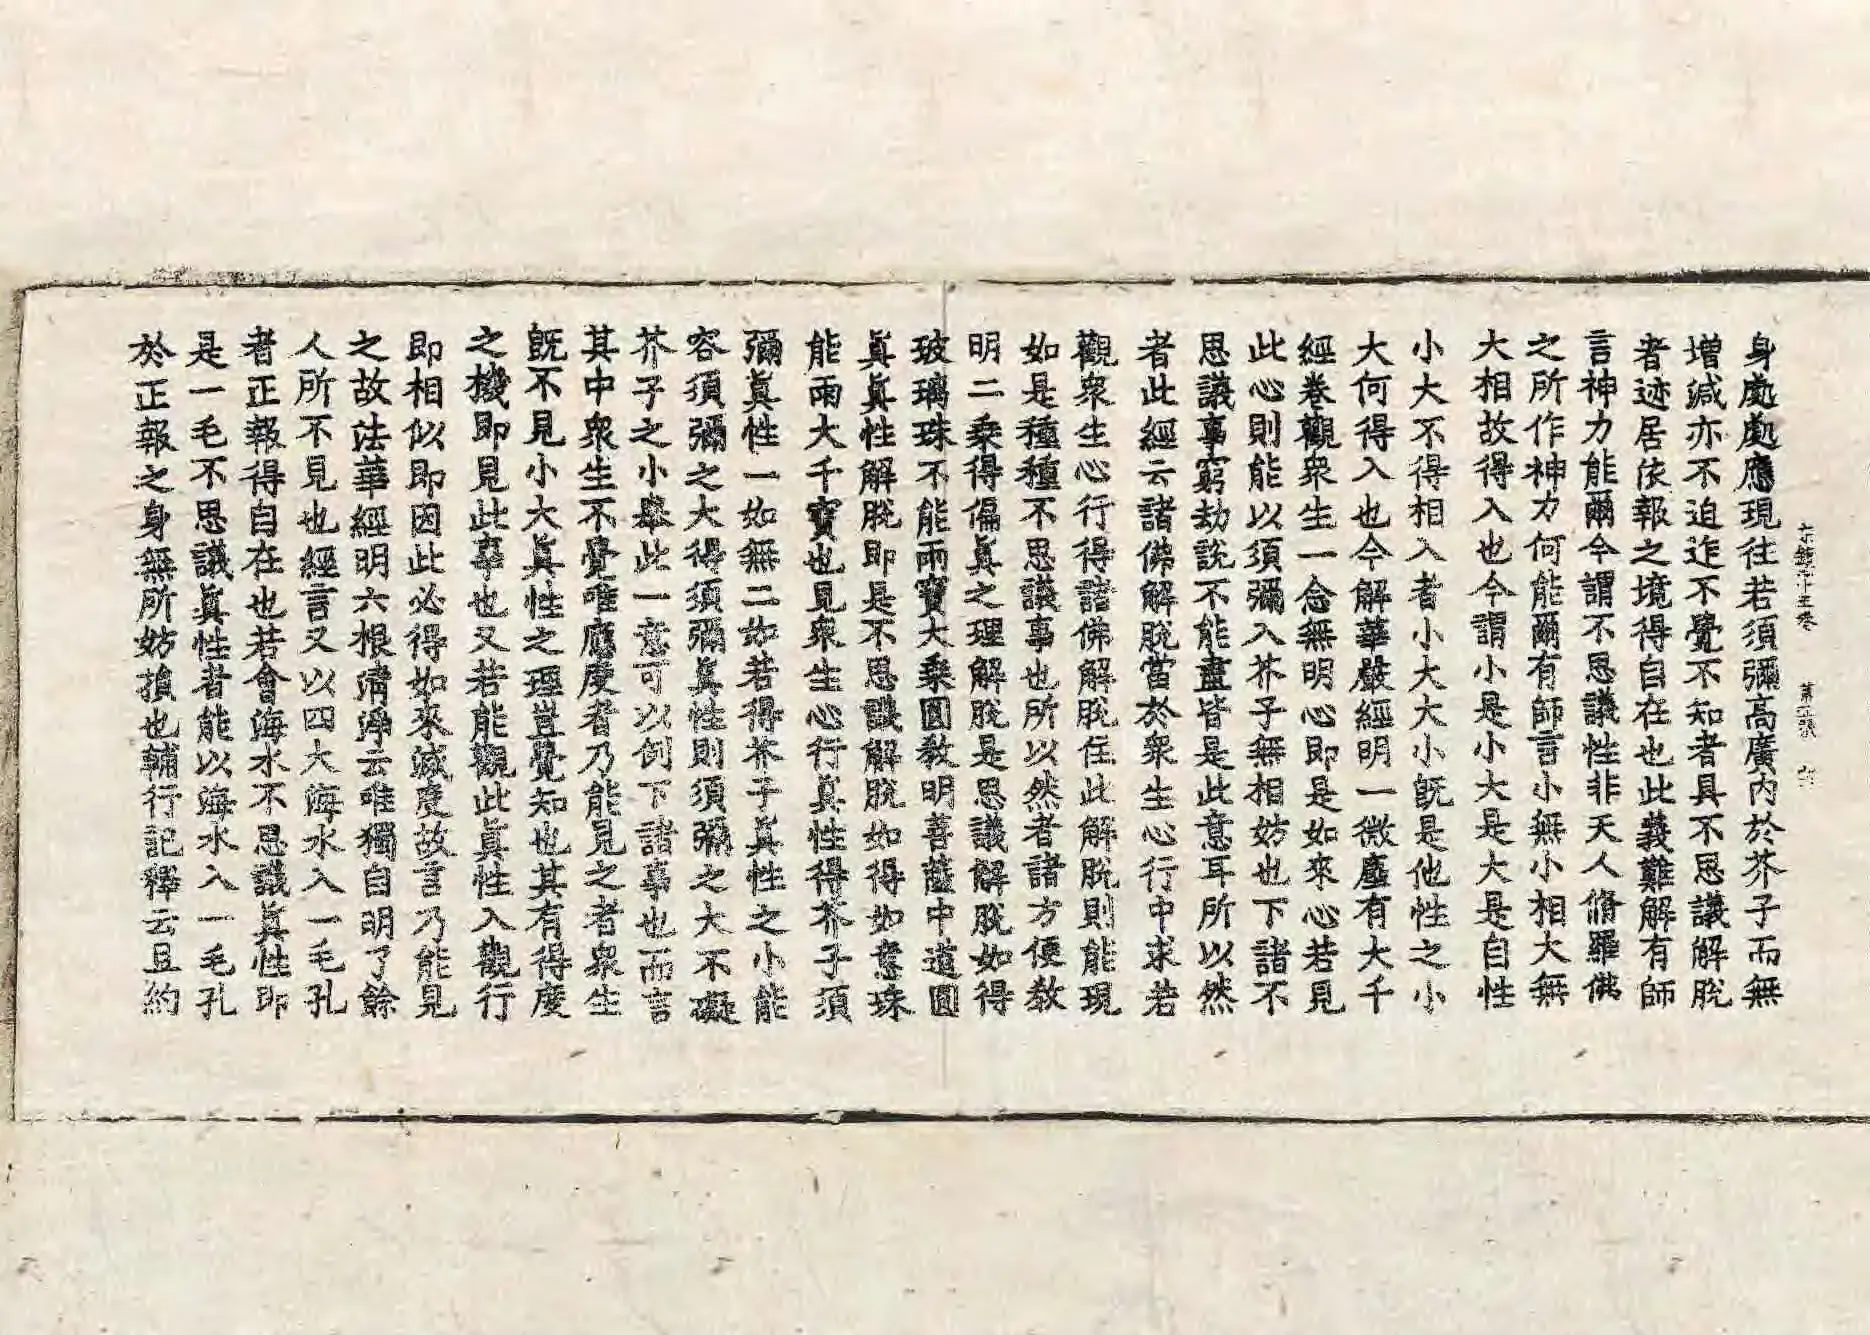 身處處應現往若須彌高廣內於芥子而無
增減亦不迫迮不覺不知者具不思議解脫
者迹居依報之境得自在也此義難解有師
言神力能爾今謂不思議性非天人脩羅佛
之所作神力何能爾有師言小無小相大無
大相故得入也今謂小是小大是大是自性
小大不得相入者小大大小旣是他性之小
大何得入也今解華嚴經明一微塵有大千
經卷觀衆生一念無明心即是如來心若見
此心則能以須彌入芥子無相妨也下諸不
思議事窮劫說不能盡皆是此意耳所以然
者此經云諸佛解脫當於衆生心行中求若
觀衆生心行得諸佛解脫住此解脫則能現
如是種種不思議事也所以然者諸方便教
明二乘得偏眞之理解脫是思議解脫如得
玻璃珠不能雨寶大乘圓教明菩薩中道圓
眞眞性解脫即是不思議解脫如得如意珠
能雨大千寶也見衆生心行眞性得芥子須
彌眞性一如無二如若得芥子眞性之小能
容須彌之大得須彌眞性則須彌之大不礙
芥子之小舉此一意可以例下諸事也而言
其中衆生不覺唯應度者乃能見之者衆生
旣不見小大眞性之理豈覺知也其有得度
之機即見此事也又若能觀此眞性入觀行
即相似即因此必得如來滅度故言乃能見
之故法華經明六根淸淨云唯獨自明了餘
人所不見也經言又以四大海水入一毛孔
者正報得自在也若會海水不思議眞性即
是一毛不思議眞性者能以海水入一毛孔
於正報之身無所妨損也輔行記釋云且約